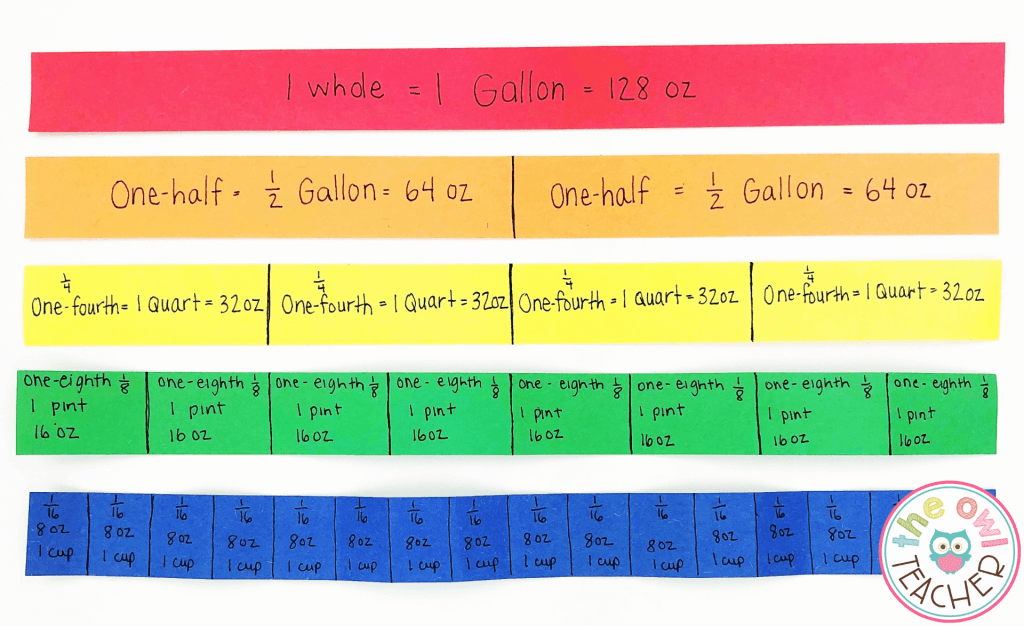 1 whole = 1 Gallon = 128 oz
One-half = 1/2 Gallon = 64 oz
One-half = 1/2 Gallon = 64 oz
1/4
One-fourth = 1 Quart = 32oz
1/4
One-fourth = 1 Quart = 32oz
1/4
One-fourth = 1 Quart = 32oz
1/4
One-fourth = 1 Quart = 32oz
one-eighth 1/8
1 pint
16 oz
one-eighth 1/8
1 pint
16 oz
one-eighth 1/8
1 pint
16oz
one-eighth 1/8
1 pint
16oz
one-eighth 1/8
1 pint
16oz
one-eighth 1/8
1 pint
16oz
one-eighth 1/8
1 pint
16oz
one-eighth 1/8
1 pint
16oz
1/16
8 oz
1 cup
1/16
8 oz
1 cup
1/16
8oz
1 cup
1/16
8oz
1 cup
1/16
8oz
1 cup
1/16
8oz
1 cup
1/16
8oz
1 cup
1/16
8oz
1 cup
1/16
8oz
1 cup
1/16
8oz
1 cup
1/16
8oz
1 cup
1/16
8oz
1 cup
1/16
8oz
1 cup
1/16
8oz
1 cup
the owl
TEACHER